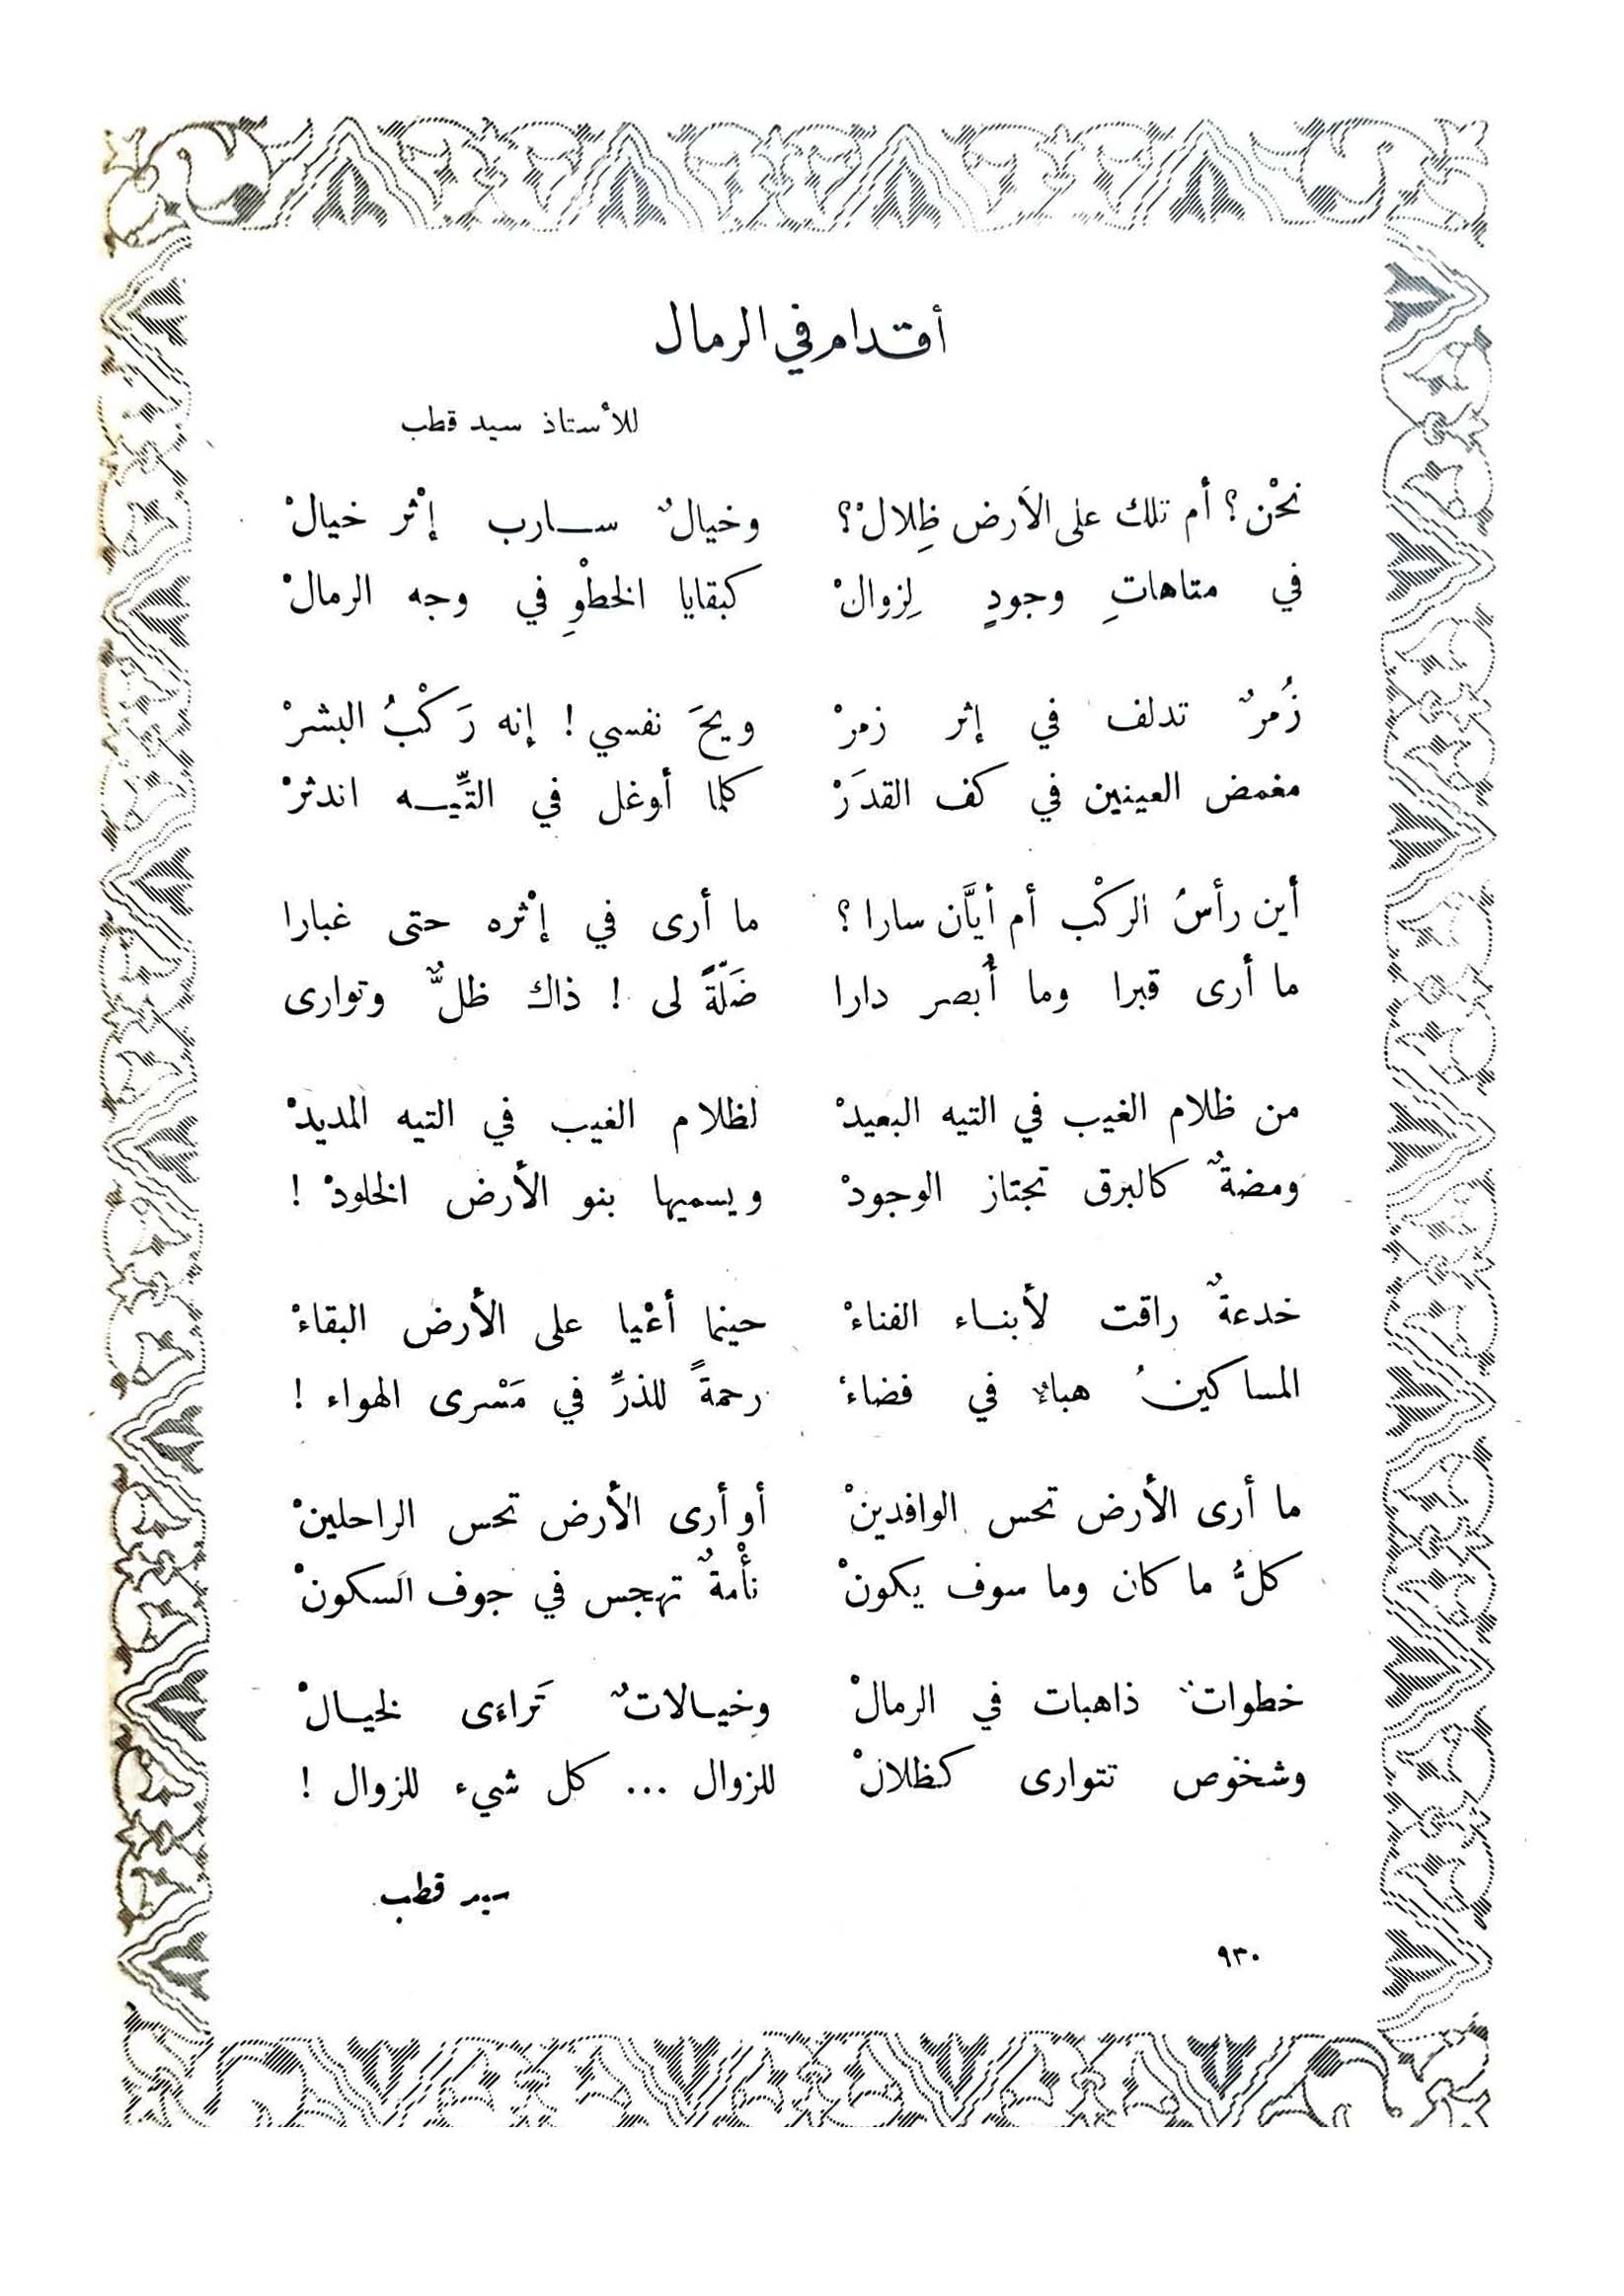 أقدام في الرمال
للأستاذ سيد قطب
نحْن؟ أم تلك على الأرض ظِلالْ؟ وخيالٌ سارب إثْر خيالْ
في متاهاتِ وجودٍ لِزوالْ كبقايا الخطْوِ في وجه الرمالْ
زُمرٌ تدلف في إثر زمرْ ويحَ نفسي! إنه رَكْبُ البشرْ
مغمض العينين في كف القدَرْ كلما أوغل في التِّيه اندثرْ
أين رأسُ الركْب أم أيَّان سارا؟ ما أرى في إثْره حتى غبارا
ما أرى قبرا وما أُبصر دارا ضَلّةً لى! ذاك ظلٌّ وتوارى
من ظلام الغيب في التيه البعيدْ لظلام الغيب في التيه المديدْ
ومضةٌ كالبرق تجتاز الوجودْ ويسميها بنو الأرض الخلودْ!
خدعةٌ راقت لأبناء الفناءْ حينما أعْيا على الأرض البقاءْ
المساكينُ هباءٌ في فضاءْ رحمةً للذرِّ في مَسْرى الهواء!
ما أرى الأرض تحس الوافدينْ أو أرى الأرض تحس الراحلينْ
كلُّ ما كان وما سوف يكونْ نأْمةٌ تهجس في جوف السكونْ
خطواتٌ ذاهبات في الرمالْ وخيالاتٌ تَراءَى لخيالْ
وشخوص تتوارى كظلالْ للزوال ... كل شيء للزوال!
سيد قطب
٩٣٠